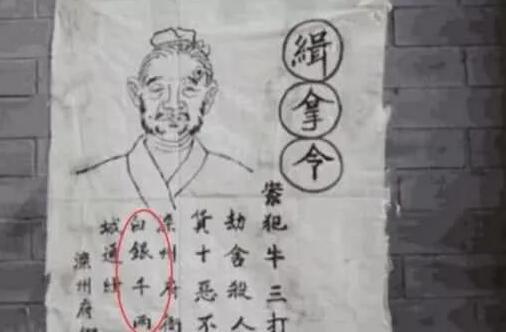 緝拿令
案犯牛三打
劫舍殺人
貨十惡不
州府衙
白銀千兩
城通緝
滦州府